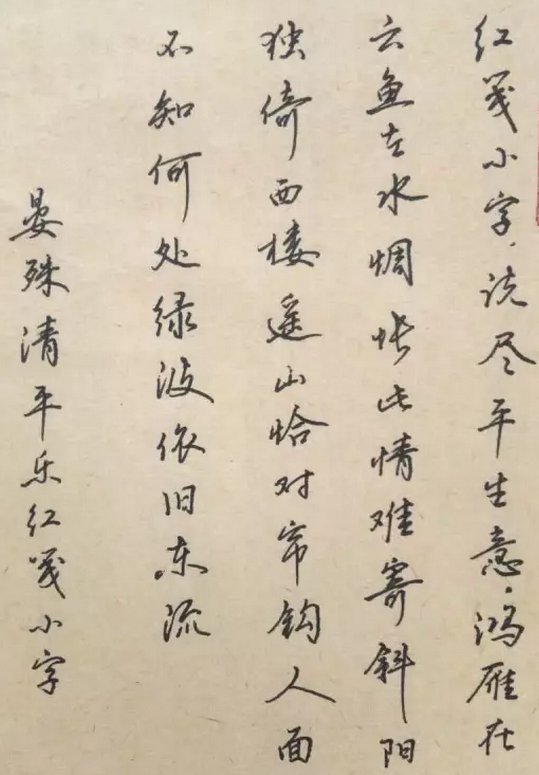 红笺小字，说尽平生意，鸿雁在
云鱼在水惆怅此情难寄斜阳
独倚西楼遥山恰对帘钩人面
不知何处绿波依旧东流
晏殊清平乐红笺小字